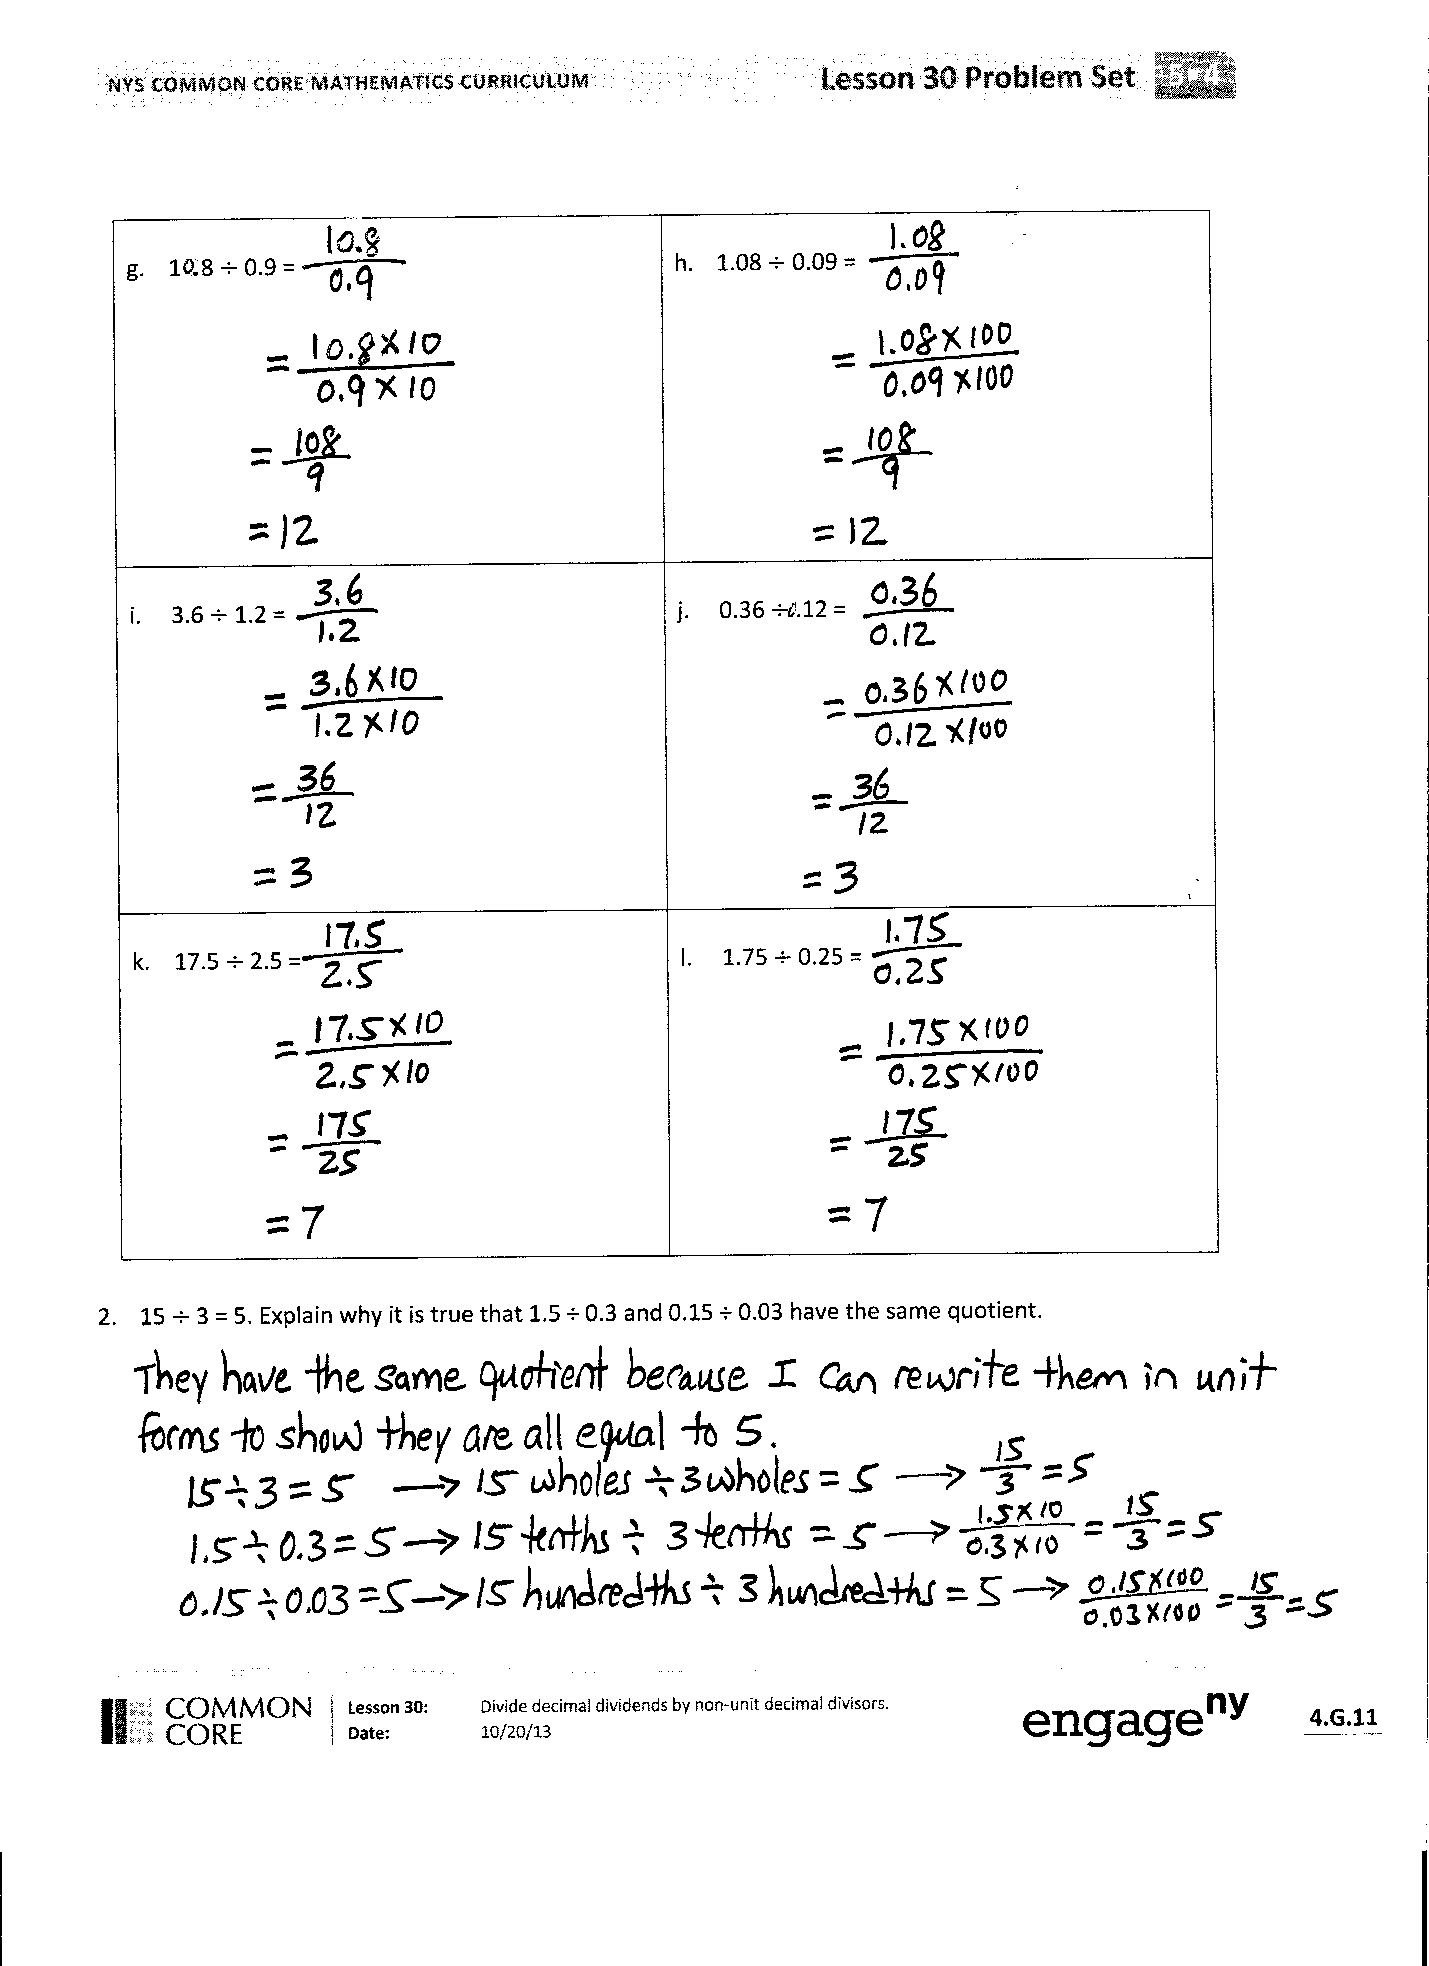 NYS COMMON CORE MATHEMATICS CURRICULUM
Lesson 30 Problem Set
g. 10.8 ÷ 0.9 = 10.8/0.9
= 10.8 × 10 / 0.9 × 10
= 108/9
= 12
h. 1.08 ÷ 0.09 = 1.08/0.09
= 1.08 × 100 / 0.09 × 100
= 108/9
= 12
i. 3.6 ÷ 1.2 = 3.6/1.2
= 3.6 × 10 / 1.2 × 10
= 36/12
= 3
j. 0.36 ÷ 0.12 = 0.36/0.12
= 0.36 × 100 / 0.12 × 100
= 36/12
= 3
k. 17.5 ÷ 2.5 = 17.5/2.5
= 17.5 × 10 / 2.5 × 10
= 175/25
= 7
l. 1.75 ÷ 0.25 = 1.75/0.25
= 1.75 × 100 / 0.25 × 100
= 175/25
= 7
2. 15 ÷ 3 = 5. Explain why it is true that 1.5 ÷ 0.3 and 0.15 ÷ 0.03 have the same quotient.
They have the same quotient because I can rewrite them in unit
forms to show they are all equal to 5.
15 ÷ 3 = 5 → 15 wholes ÷ 3 wholes = 5 → 15/3 = 5
1.5 ÷ 0.3 = 5 → 15 tenths ÷ 3 tenths = 5 → 1.5 × 10 / 0.3 × 10 = 15/3 = 5
0.15 ÷ 0.03 = 5 → 15 hundredths ÷ 3 hundredths = 5 → 0.15 × 100 / 0.03 × 100 = 15/3 = 5
COMMON CORE
Lesson 30: Divide decimal dividends by non-unit decimal divisors.
Date: 10/20/13
engage ny
4.G.11